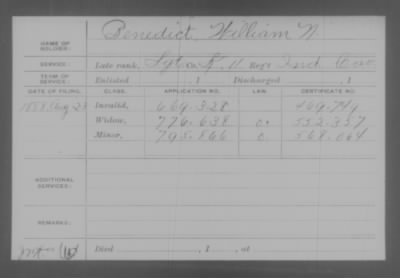 NAME OF SOLDIER: Benedict, William N.
SERVICE: Late rank, Co. K, 11 Reg't Ind. Cav.
TERM OF SERVICE: Enlisted , 1 Discharged , 1
DATE OF FILING. CLASS. APPLICATION NO. LAW. CERTIFICATE NO.
1888 Aug 23 Invalid, 669.328 469.749
Widow, 776.638 552.357
Minor, 795.866 568.064
ADDITIONAL SERVICES:
REMARKS:
Died , 1 , at